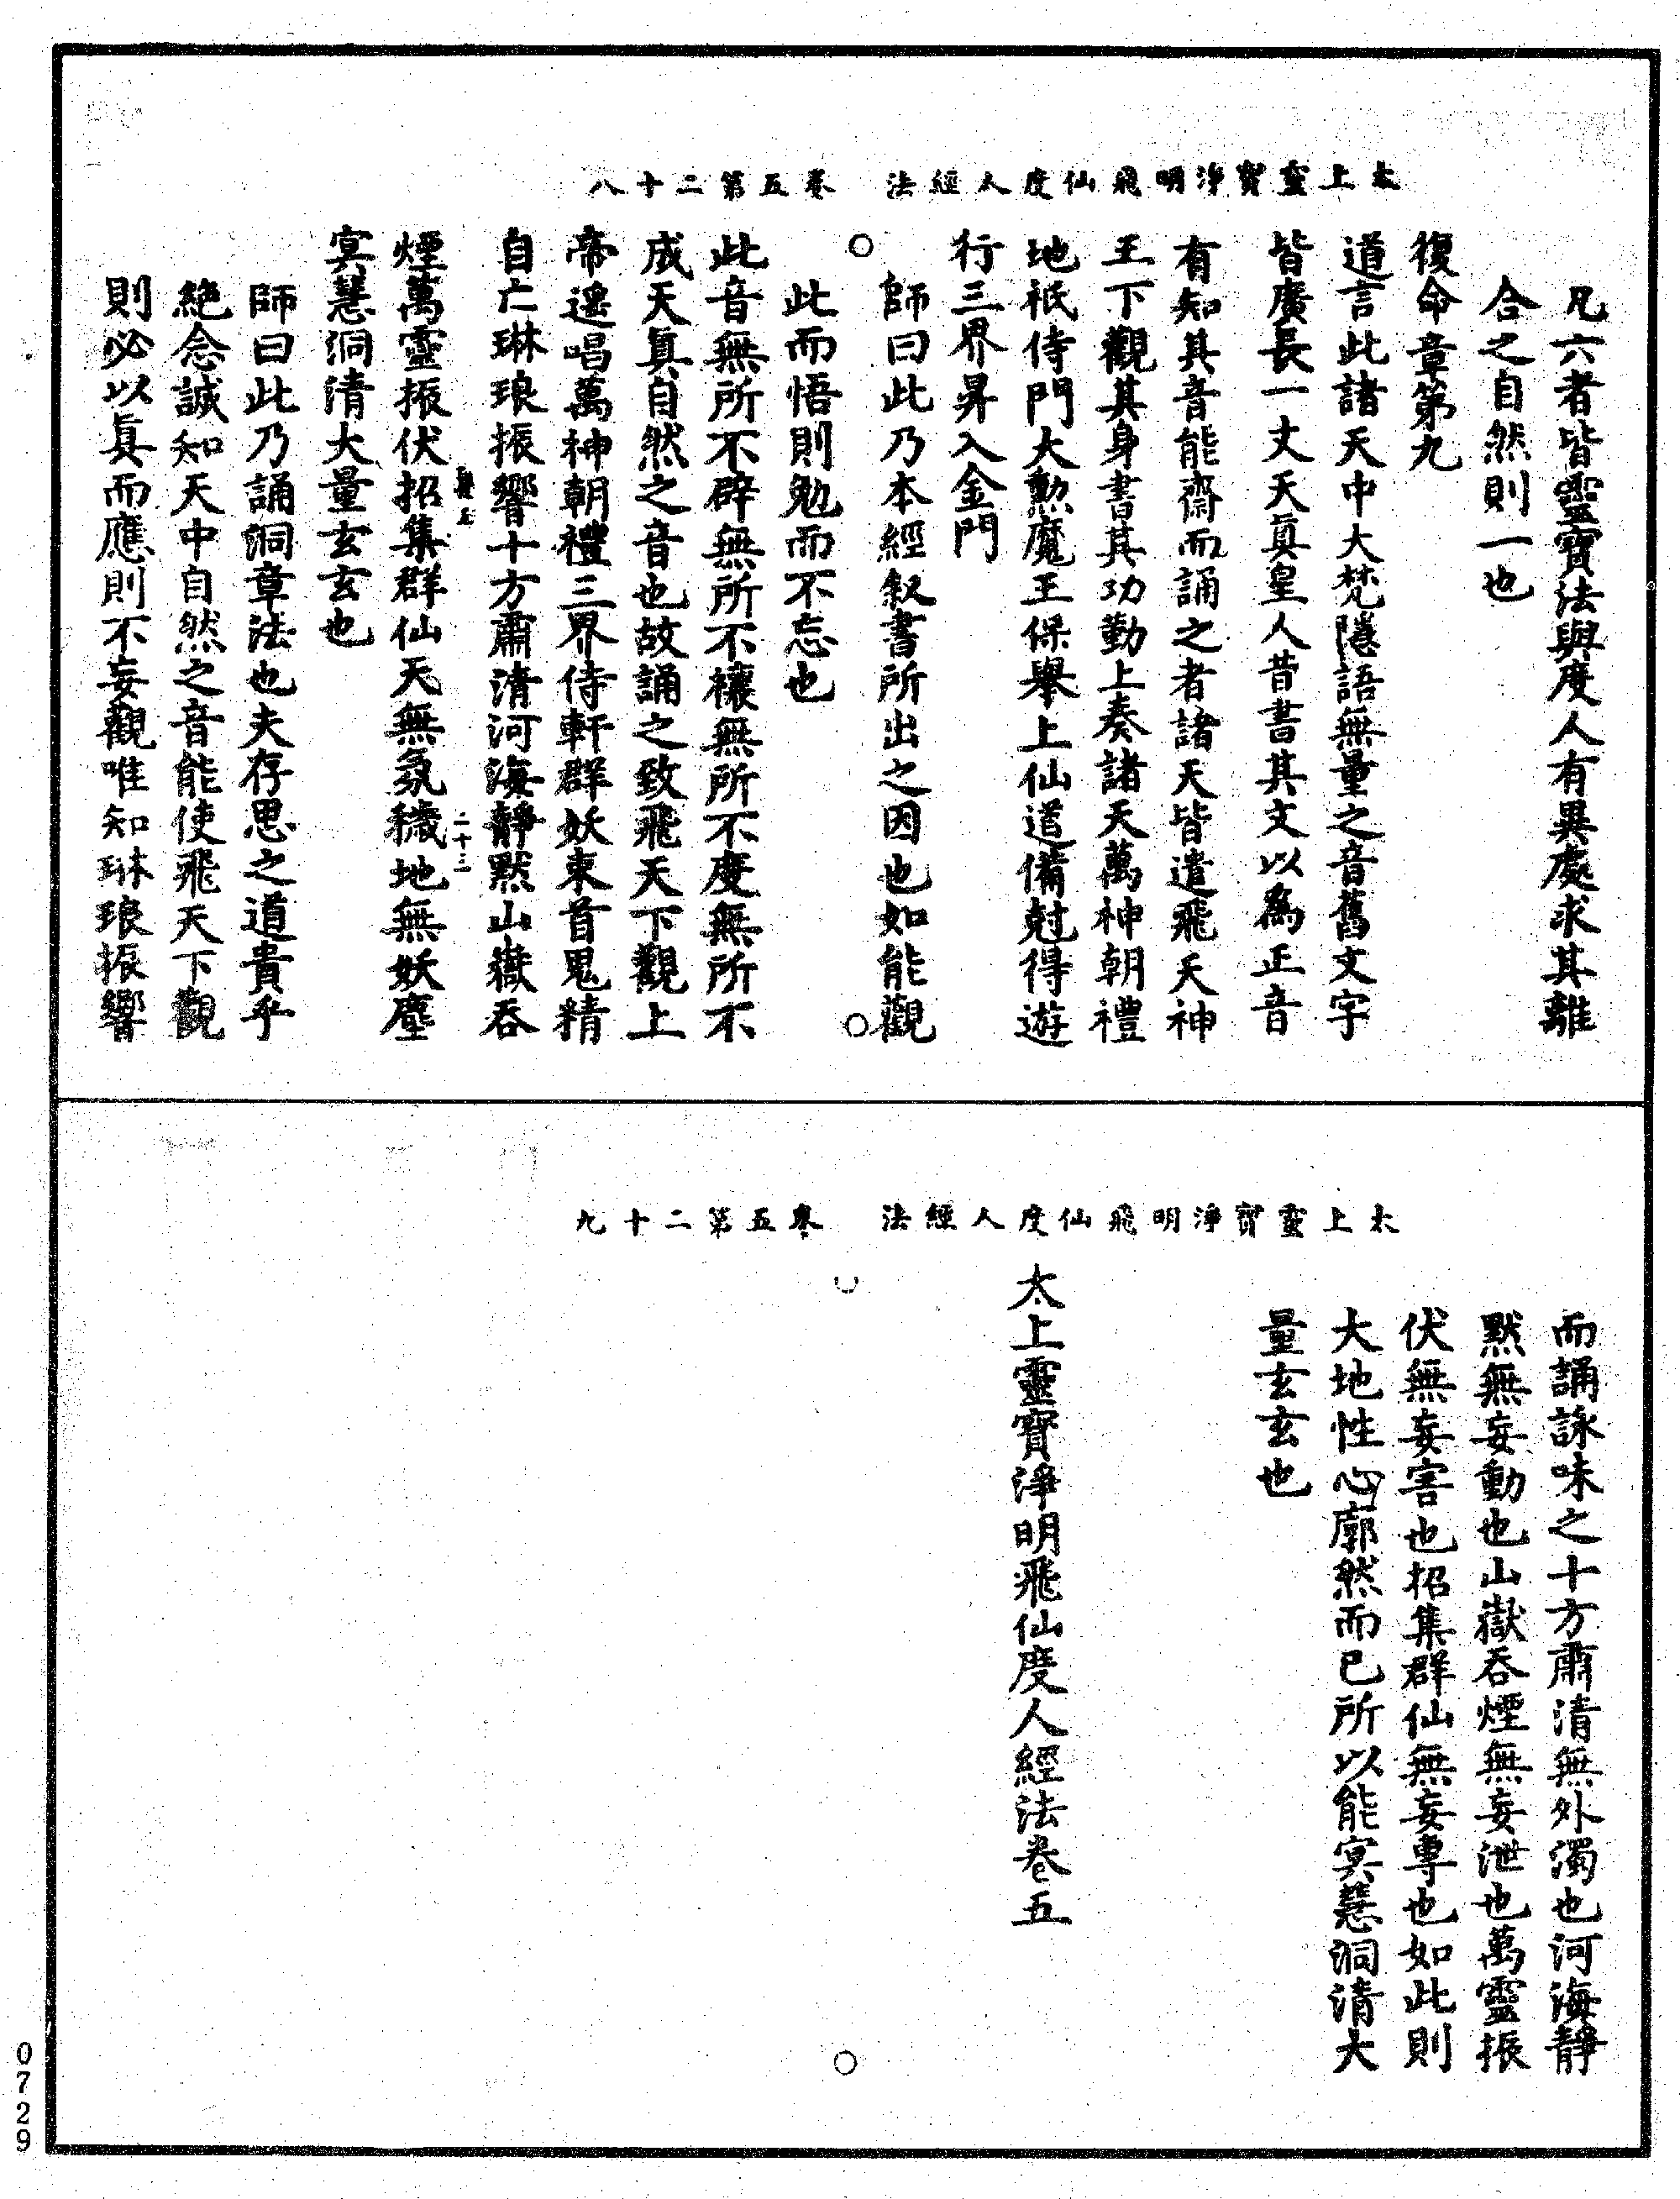 太上靈寶淨明飛仙度人經法　卷五第二十八
凡六者皆靈寶法與度人有異處求其離
合之自然則一也
復命章第九
道言此諸天中大梵隱語無量之音舊文字
皆廣長一丈天真皇人昔書其文以為正音
有知其音能齋而誦之者諸天皆遣飛天神
王下觀其身書其功勤上奏諸天萬神朝禮
地祇侍門大勳魔王保舉上仙道備剋得遊
行三界昇入金門
師曰此乃本經叙書所出之因也如能觀
此而悟則勉而不忘也
此音無所不辟無所不禳無所不度無所不
成天真自然之音也故誦之致飛天下觀上
帝遥唱萬神朝禮三界侍軒群妖束首鬼精
自亡琳琅振響十方肅清河海靜默山嶽吞
二十三
煙萬靈振伏招集群仙天無氛穢地無妖塵
冥慧洞清大量玄玄也
師曰此乃誦洞章法也夫存思之道貴乎
絶念誠知天中自然之音能使飛天下觀
則必以真而應則不妄觀唯知琳琅振響
太上靈寶淨明飛仙度人經法　卷五第二十九
而誦詠味之十方肅清無外濁也河海靜
默無妄動也山嶽吞煙無妄泄也萬靈振
伏無妄害也招集群仙無妄專也如此則
大地性心廓然而已所以能冥慧洞清大
量玄玄也
太上靈寶淨明飛仙度人經法卷五
0729